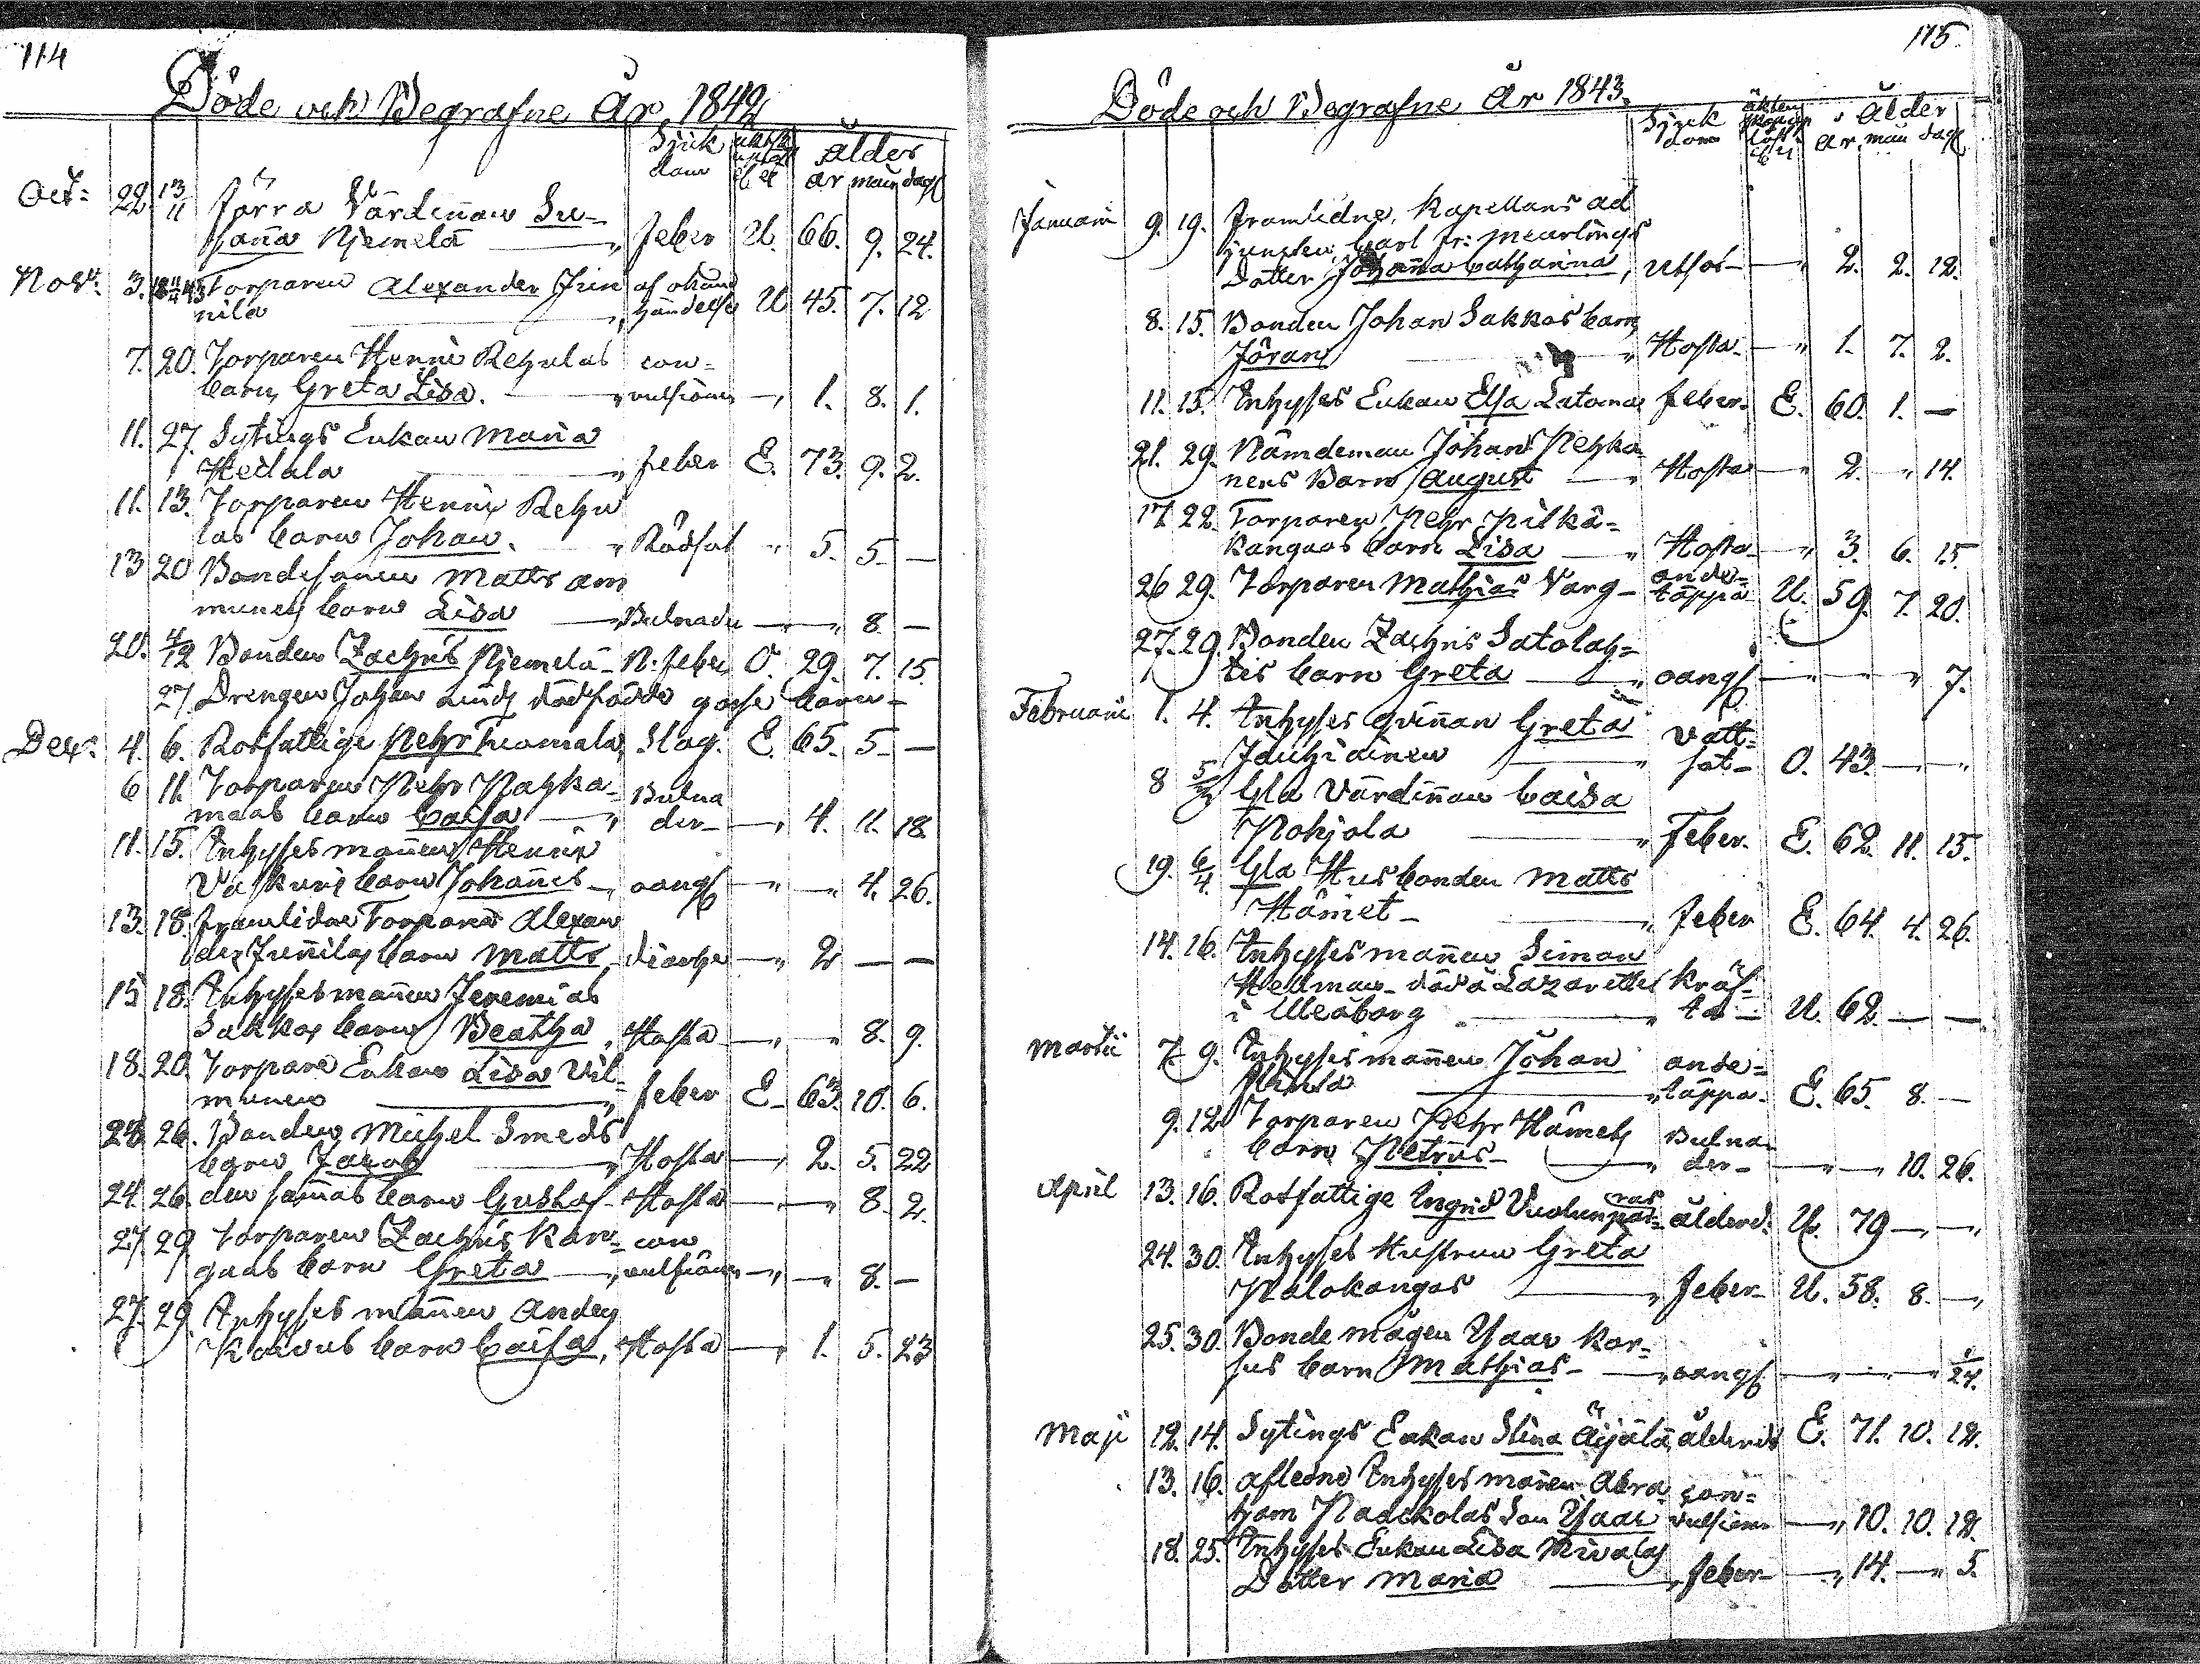 114
Döde och Begrafne År 1842
Sjuk
dom
Ålder
år mån dag
Oct: 22. 13/11 Förra Värdinnan Su-
sanna Niemelä — Feber U. 66. 9. 24.
Nov: 3. Torparen Alexander Jun af skund
nila — händelse U 45. 7. 12
7. 20. Torparen Henric Rehulas con-
barn Greta Lisa. — vulsioner — 1. 8. 1.
11. 27. Sytings Enkan Maria
Heilala — feber E. 73. 9. 2.
11. 13. Torparen Henric Rehu
las barn Johan. — Rödsot " 5. 5. —
13 20 Bondesonen Matts
barn Lisa — Bulnader — — 8. —
20. 4/12 Bonden Zachris Niemelä - N: feber O. 29. 7. 15.
27 Drengen Johan dödfödde gosse barn -
Dec: 4. 6. Rotfattige Pehr Tuomala, Slag. E. 65. 5 —
6 11. Torparen Pehr Bulna
barn Caisa — der — 4. 11. 18.
11. 15. Inhyses mannen Henric
barn Johannes — oangf — — 4. 26.
13. 18. framlidne Torparen Alexan
der Junnilas barn Matts, diarhe — 2 — —
15 18. Inhyses mannen Jeremias
Sakkos barn Beatha, Hosta — — 8. 9.
18. 20. Torpare Enkan Lisa Vil-
munen — feber E — 63. 10. 6.
26. Bonden Michel Smeds
barn Jacob — Hosta — 2. 5. 22
24. 26. den sammas barn Gustaf - Hosta — — 8. 2.
27. 29 Torparen Zachris Kan- con
gaas barn Greta — vulsioner — — 8. —
27. 29. Inhyses mannen Anders
Koivus barn Caisa, Hosta — 1. 5. 23
115.
Döde och Begrafne År 1843.
Sjuk
dom
Ålder
År mån dag
Januari 9. 19. framlidne, Kapellans ad
juncten, Carl Fr: Meurlings
Dotter Johanna Catharina, Utsot — " 2. 2. 12.
8. 15. Bonden Johan Sakkos barn
Jöran — Hosta — " 1. 7. 2.
11. 15. Inhyses Enkan Elsa Latoma feber. E. 60. 1. —
21. 29. Nämdeman Johan
nens Barn August — Hosta — " 2. — " 14.
17. 22. Torparen Pehr Pitkä-
kangaas barn Lisa — Hosta — " 3. 6. 15.
26 29. Torparen Mathias Varg — ande-
täppa U. 59. 7. 20.
27. 29. Bonden Zachris Satolah-
tis barn Greta — oangf — — — 7.
Februarii 1. 4. Inhyses qvinnan Greta
Jauhiainen — Vatt-
sot — O. 43. — —
8 Gla Värdinnan Caisa
Pohjola — Feber. E. 62. 11. 15.
19. 6/4 Gla Husbonden Matts
Hämet — feber E. 64. 4. 26.
14. 16. Inhyses mannen Simon
Hedman — död å Lazarettet Kräf-
i Uleåborg — ta — U. 62. — —
Martii 7. 9. Inhyses mannen Johan ande-
— täppa. E. 65. 8. —
9. 12 Torparen Pehr Hämets Bulna
barn Petrus — der — — — 10. 26.
April 13. 16. Rotfattige Ingrid ålderd. U. 79 — —
24. 30. Inhyses Hustrun Greta
Palokangas — feber — U. 58. 8. —
25. 30. Bonde mågen Isaac Kor-
sus barn Mathias — oangf. — — — 1/24.
Maji 12. 14. Sytings Enkan Stina Äijälä, ålderd. E. 71. 10. 12.
13. 16. afledne Inhyses mannen Abra con-
ham Paackolas Son Isaac vulsion — 10. 10. 12.
18. 25. Inhyses Enkan Lisa
Dotter Maria — feber — — 14. — 5.